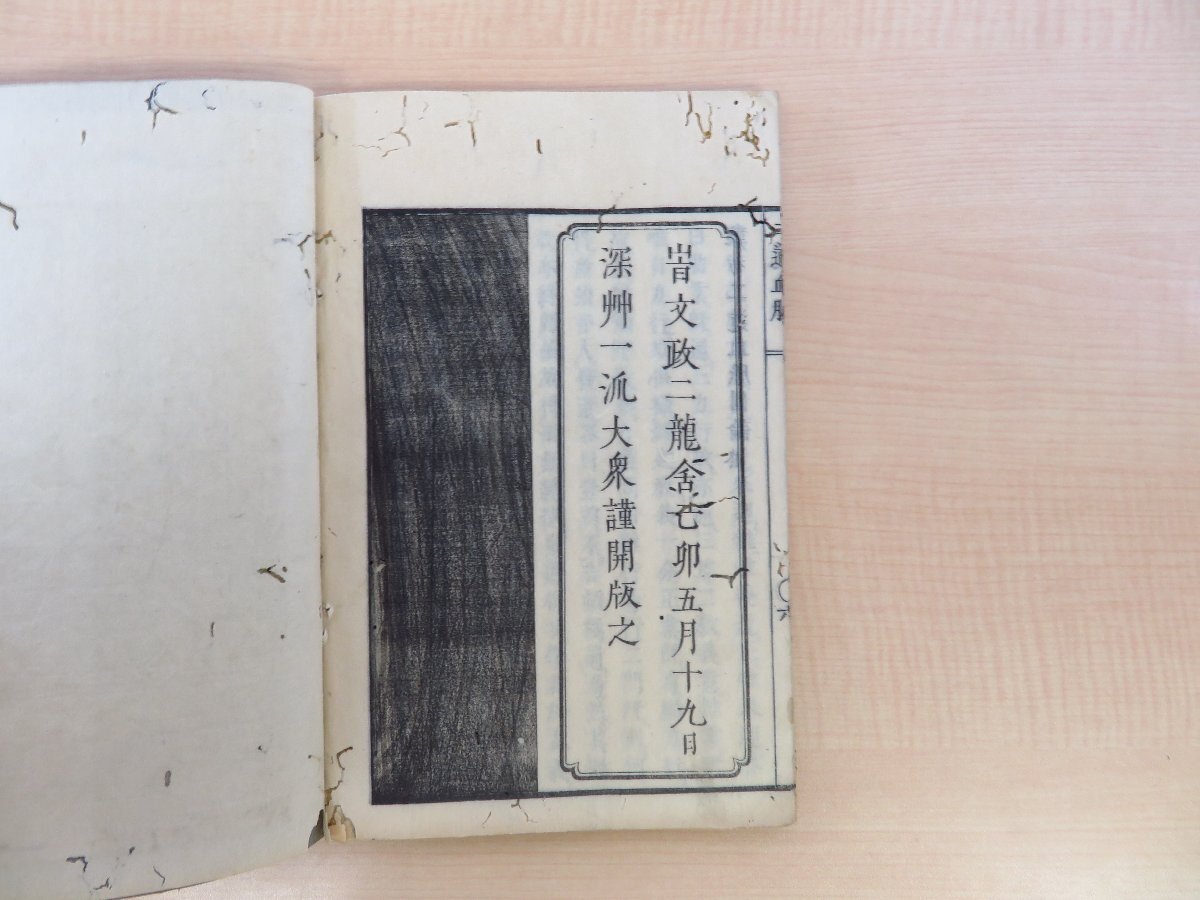 旹文政二龍舍己卯五月十九日
深艸一派大衆謹開版之